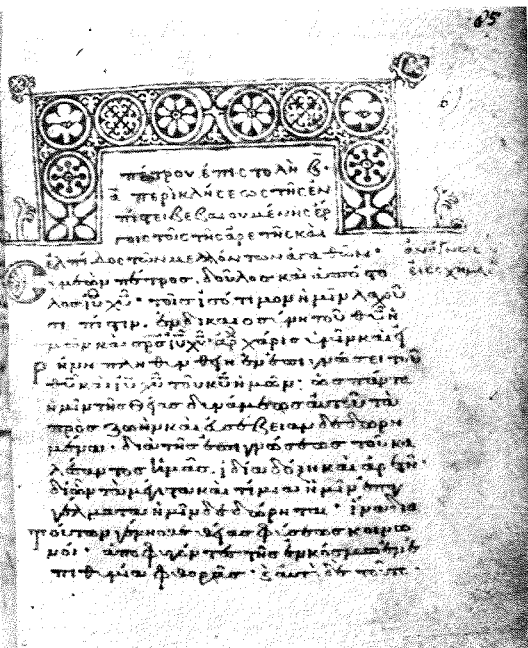 65
πέτρου ἐπιστολὴ β̅·
α̅ περὶ κλήσεως τῆς ἐν
πίστει βεβαιουμένης ἔρ
γοις τοῖς τῆς ἀρετῆς καὶ
ἐλπίδος τῶν μελλόντων ἀγαθῶν·
Συμεὼν πέτρος. δοῦλος καὶ ἀπόστο
λος ι̅υ̅ χ̅υ̅· τοῖς ἰσότιμον ἡμῖν λαχοῦ
σι πίστιν. ἐν δικαιοσύνη τοῦ θ̅υ̅ ἡ
μῶν καὶ σ̅ρ̅σ̅ ι̅υ̅ χ̅υ̅· χάρις ὑμῖν καὶ εἰ
ρήνη πληθυνθείη ἐν ἐπιγνώσει τοῦ
θ̅υ̅ καὶ ι̅υ̅ χ̅υ̅ τοῦ κ̅υ̅ ἡμῶν· ὡς πάντα
ἡμῖν τῆς θείας δυνάμεως αὐτοῦ τὰ
πρὸς ζωὴν καὶ εὐσέβειαν δεδωρη
μένης. διὰ τῆς ἐπιγνώσεως τοῦ κα
λέσαντος ἡμᾶς. ἰδία δόξη καὶ ἀρετῆ·
δι' ὧν τὰ μέγιστα καὶ τίμια ἡμῖν ἐπαγ
γέλματα ἡμῖν δεδώρηται· ἵνα διὰ
τούτων γένησθε θείας φύσεως κοινω
νοί· ἀποφυγόντες τῆς ἐν κόσμω ἐν ἐ
πιθυμία φθορᾶς·